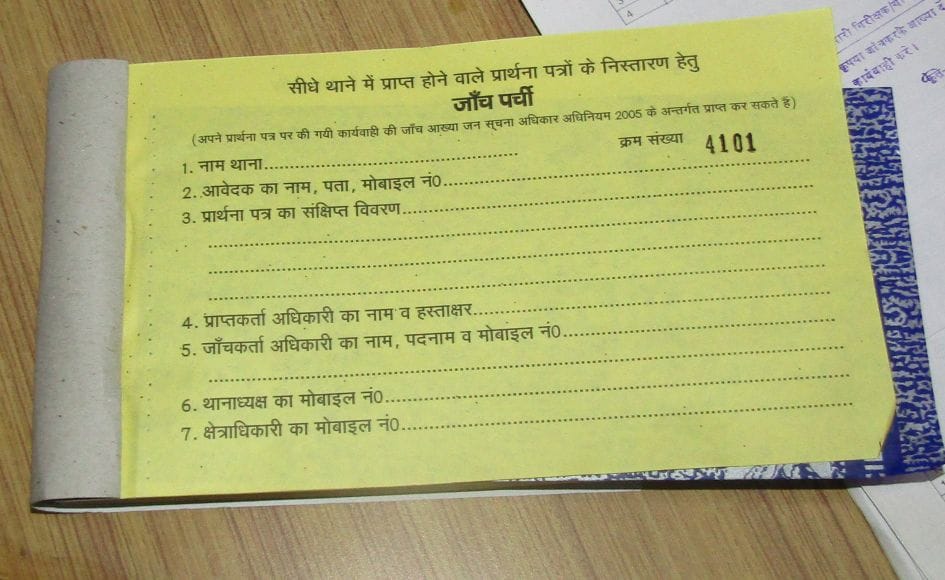 सीधे थाने में प्राप्त होने वाले प्रार्थना पत्रों के निस्तारण हेतु
जाँच पर्ची
(अपने प्रार्थना पत्र पर की गयी कार्यवाही की जाँच आख्या जन सूचना अधिकार अधिनियम 2005 के अन्तर्गत प्राप्त कर सकते हैं)
क्रम संख्या 4101
1. नाम थाना
2. आवेदक का नाम, पता, मोबाइल नं0
3. प्रार्थना पत्र का संक्षिप्त विवरण
4. प्राप्तकर्ता अधिकारी का नाम व हस्ताक्षर
5. जाँचकर्ता अधिकारी का नाम, पदनाम व मोबाइल नं0
6. थानाध्यक्ष का मोबाइल नं0
7. क्षेत्राधिकारी का मोबाइल नं0
4